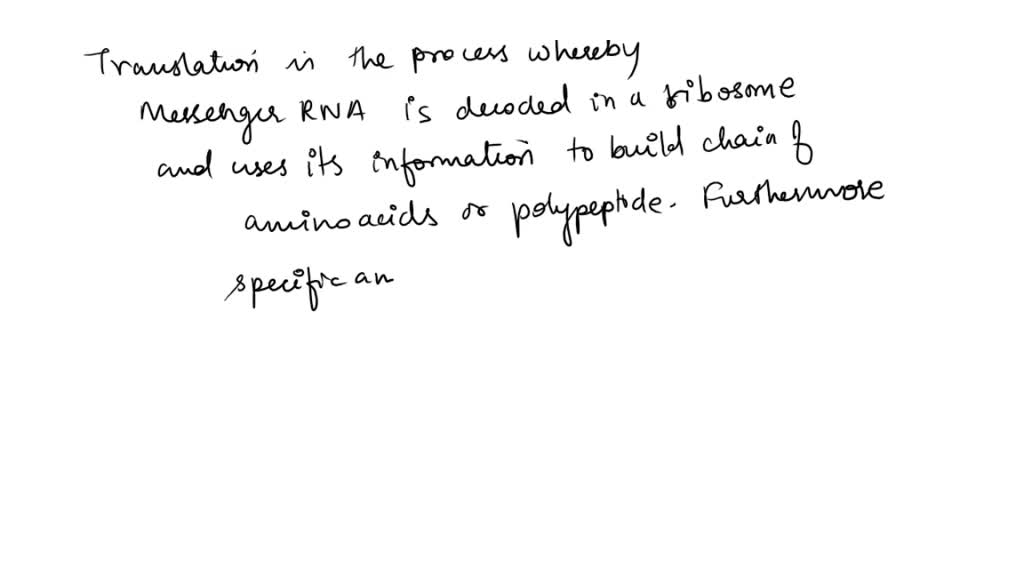 Translation is the process whereby
Messenger RNA is decoded in a ribosome
and uses its information to build chain of
amino acids or polypeptide. Furthermore
specific an